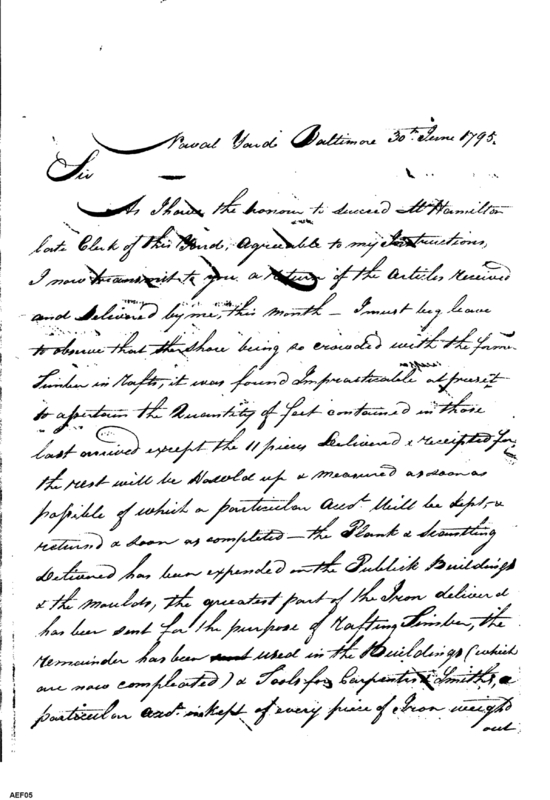 Naval Yard Baltimore 30th June 1795.
Sir
As I have the honour to succeed Mr Hamilton
late Clerk of this Yard, agreeable to my Instructions,
I now transmit to you a return of the Articles received
and Delivered by me, this month – I must beg leave
to observe that the Shore being so crowded with the former
Timber in Rafts, it was found Impracticable at present
to ascertain the Quantity of feet contained in those
last arrived except the 11 pieces Delivered & receipted for
the rest will be Hawld up & measured as soon as
possible of which a particular acct. Will be kept, &
returnd as soon as completed – the Plank & Scantling
Delivered has been expended on the Publick Buildings
& the moulds, the greatest part of the Iron deliverd
has been sent for the purpose of Rafting Timber, the
remainder has been used in the Buildings (which
are now compleated) & Tools for Carpenters & Smiths, a
particular acct. is kept of every piece of Iron weighd
out
AEF05